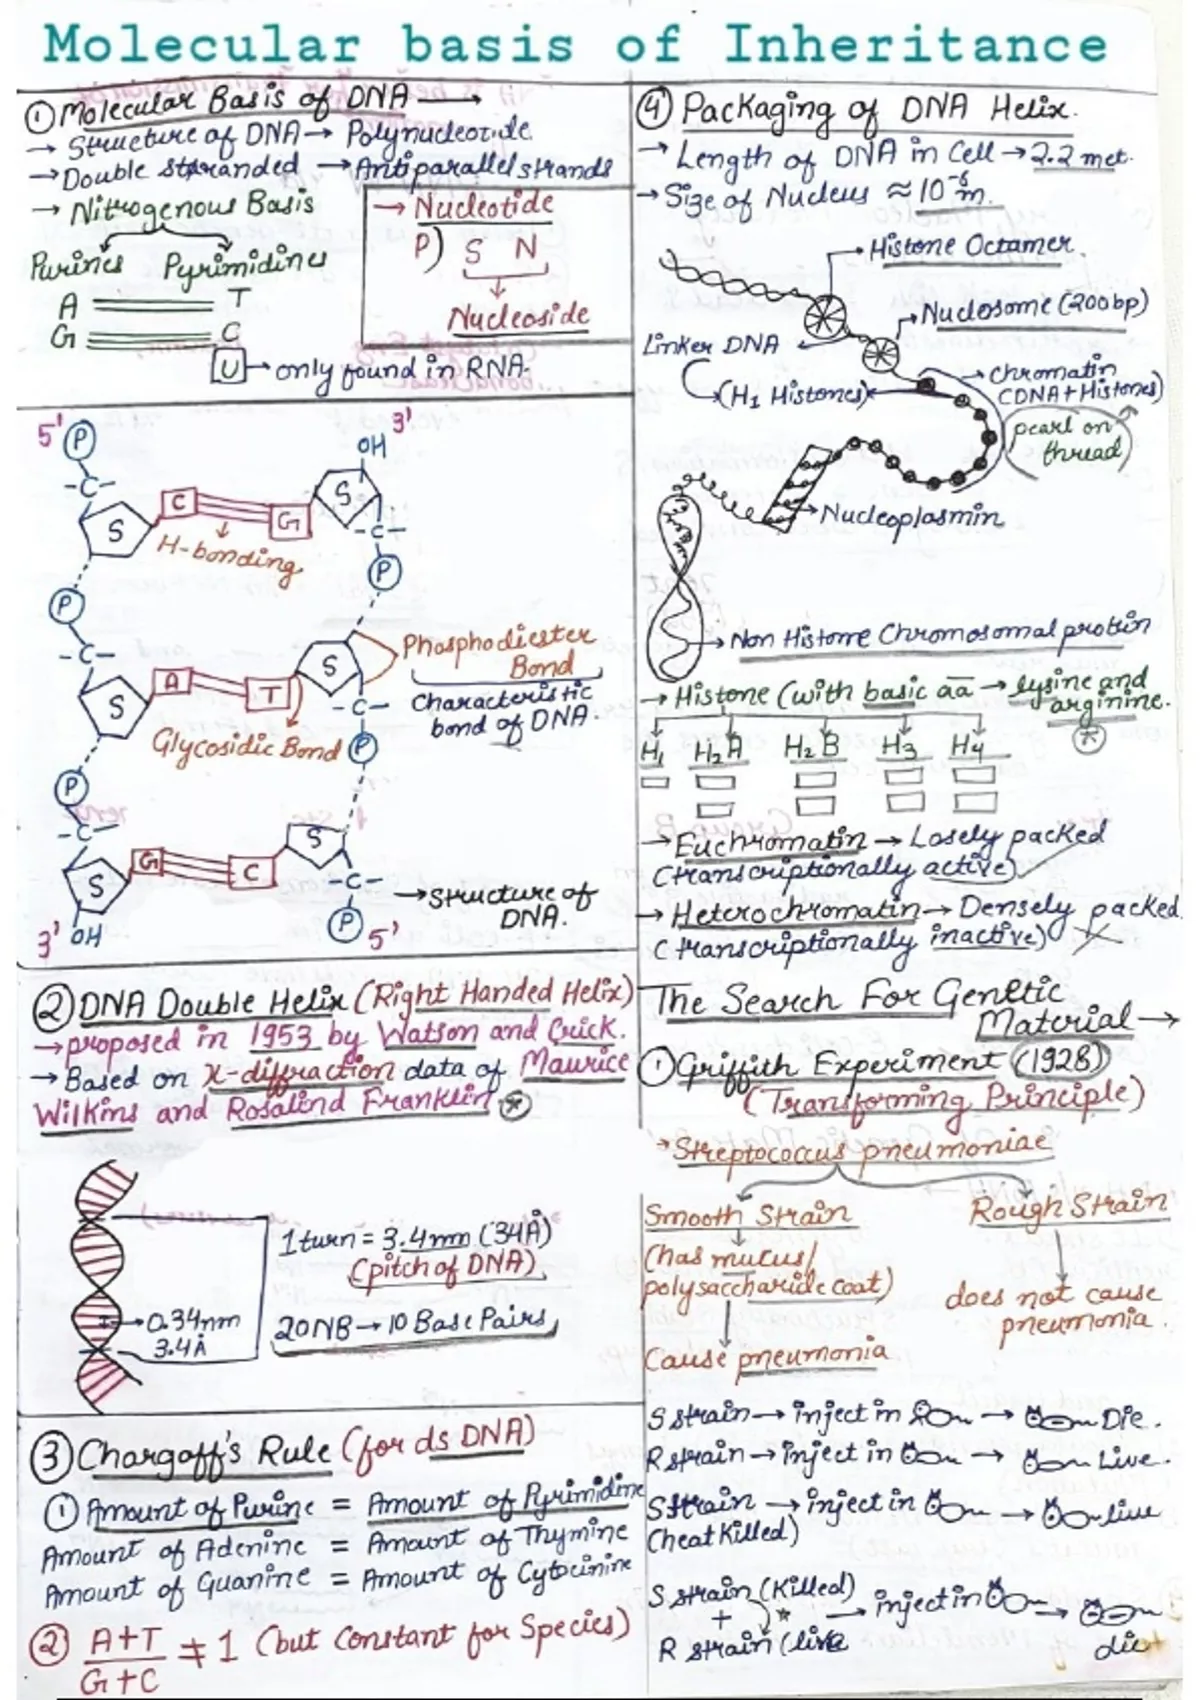 Molecular basis of Inheritance
① Molecular Basis of DNA →
→ Structure of DNA → Polynucleotide
→ Double stranded → Antiparallel strands
→ Nitrogenous Basis
Purines Pyrimidines
A T
G C
U → only found in RNA.
→ Nucleotide
P) S N
Nucleoside
5' P 3'
OH
-C-
S C G S
H-bonding -C-
P
P
-C-
S A T S
Phosphodiester
Bond
Characteristic
bond of DNA.
-C-
Glycosidic Bond P
P
-C-
S G C S
-C-
→ Structure of
DNA.
3' OH P 5'
② DNA Double Helix (Right Handed Helix)
→ proposed in 1953 by Watson and Crick.
→ Based on X-diffraction data of Maurice
Wilkins and Rosalind Franklin *
1 turn = 3.4nm (34Å)
(pitch of DNA)
→ 0.34nm
3.4Å
20NB → 10 Base Pairs
③ Chargaff's Rule (for ds DNA)
① Amount of Purine = Amount of Pyrimidine
Amount of Adenine = Amount of Thymine
Amount of Guanine = Amount of Cytocinine
② A+T
G+C ≠ 1 (but Constant for Species)
④ Packaging of DNA Helix.
→ Length of DNA in Cell → 2.2 met.
→ Size of Nucleus ≈ 10⁻⁶ m.
→ Histone Octamer
→ Nuclosome (200bp)
Linker DNA
(H₁ Histones)
→ chromatin
(DNA + Histones)
pearl on
thread
→ Nucleoplasmin
→ Non Histone Chromosomal protein
→ Histone (with basic aa → lysine and
arginine.
*
H₁ H₂A H₂B H3 H4
→ Euchromatin → Losely packed
(transcriptionally active)
→ Heterochromatin → Densely packed
(transcriptionally inactive)
The Search For Genetic
Material →
① Griffith Experiment (1928)
(Transforming Principle)
→ Streptococcus pneumoniae
Smooth Strain Rough Strain
(has mucus/
polysaccharide coat)
does not cause
pneumonia.
Cause pneumonia
S strain → inject in → Die.
R strain → inject in → Live.
S strain → inject in → live
(heat Killed)
S strain (Killed)
+ * → inject in →
R strain (live die